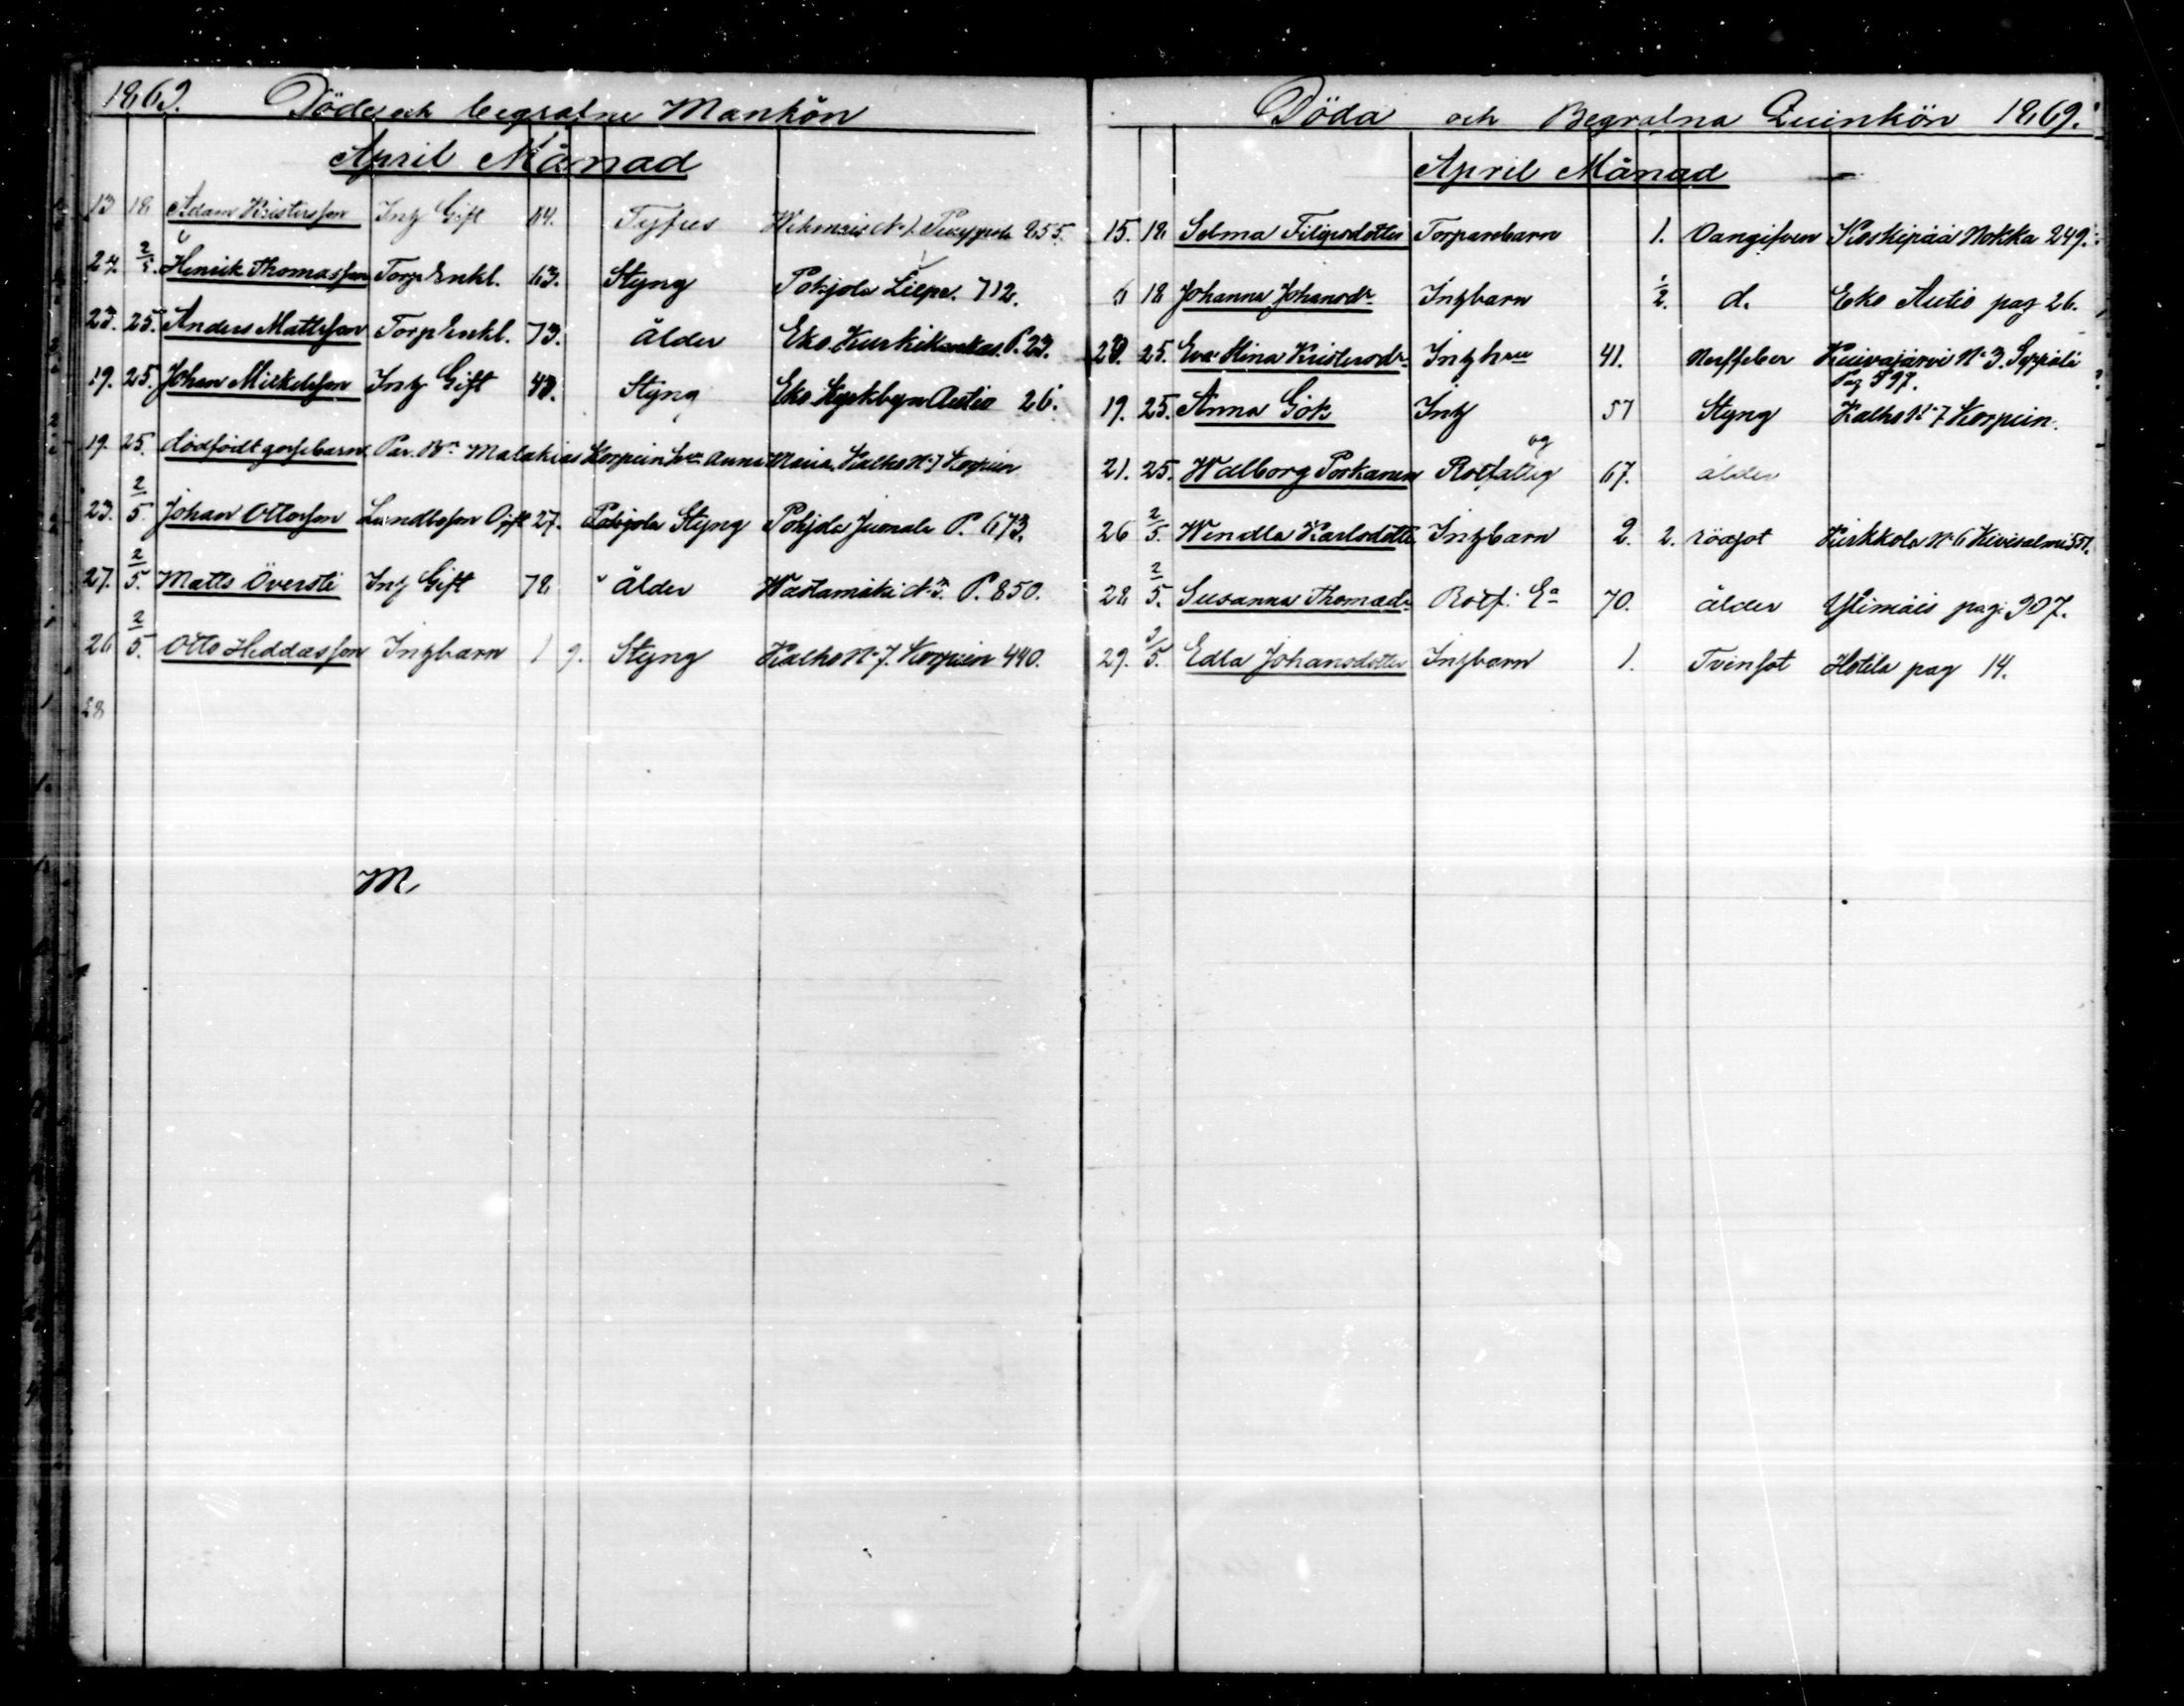 1869. Döde och begrafne Mankön
April Månad
13 18 Adam Kristersson Inh Gift 64. Tyfus 855.
24. 2/5. Henrik Thomasson Torp Enkl. 63. Styng Pohjola Liepe. 712.
23. 25. Anders Mattsson Torp Enkl. 73. ålder Eko. P. 23.
19. 25. Johan Mickelsson Inh Gift 43. Styng Eko Kyrkbyn Autio 26.
19. 25. dödfödt gossebarn Par. Malakias Korpein Anna Maria, Kalho No 7 Korpein
23. 2/5. Johan Ottosson Ogift 27. Pohjola Styng Pohjola Jumala P. 673.
27. 2/5. Matts Översti Inh Gift 78 ålder Wastamäki No 3. P. 850.
26 2/5. Otto Inhbarn 1 9. Styng Kalho No 7. Korpein 440.
28
M
Döda och Begrafna Quinkön 1869.
April Månad
15. 18 Selma Filipsdotter Torparebarn 1. Oangifven Koskipää Nokka 249.
6 18 Johanna Johansdr Inhbarn 1/2. d. Eko Autio pag 26.
20. 25. Eva Stina Kristersdr Inhhru 41. Kuivajärvi No 3. Seppälä
Pag 597.
19. 25. Anna Gök Inh 57 Styng Kalho No 7 Korpein.
og
21. 25. Walborg Rotfattig 67. ålder
26 2/5. Wendla Karlsdotter Inhbarn 2. 2. rödsot Kirkkola No 6 Kivisalmi 551.
28 2/5. Susanna Thomasdr Rotf. Ea 70. ålder Ylimäis pag. 907.
29. 2/5. Edla Johansdotter Inhbarn 1. Tvinsot Hotila pag 14.